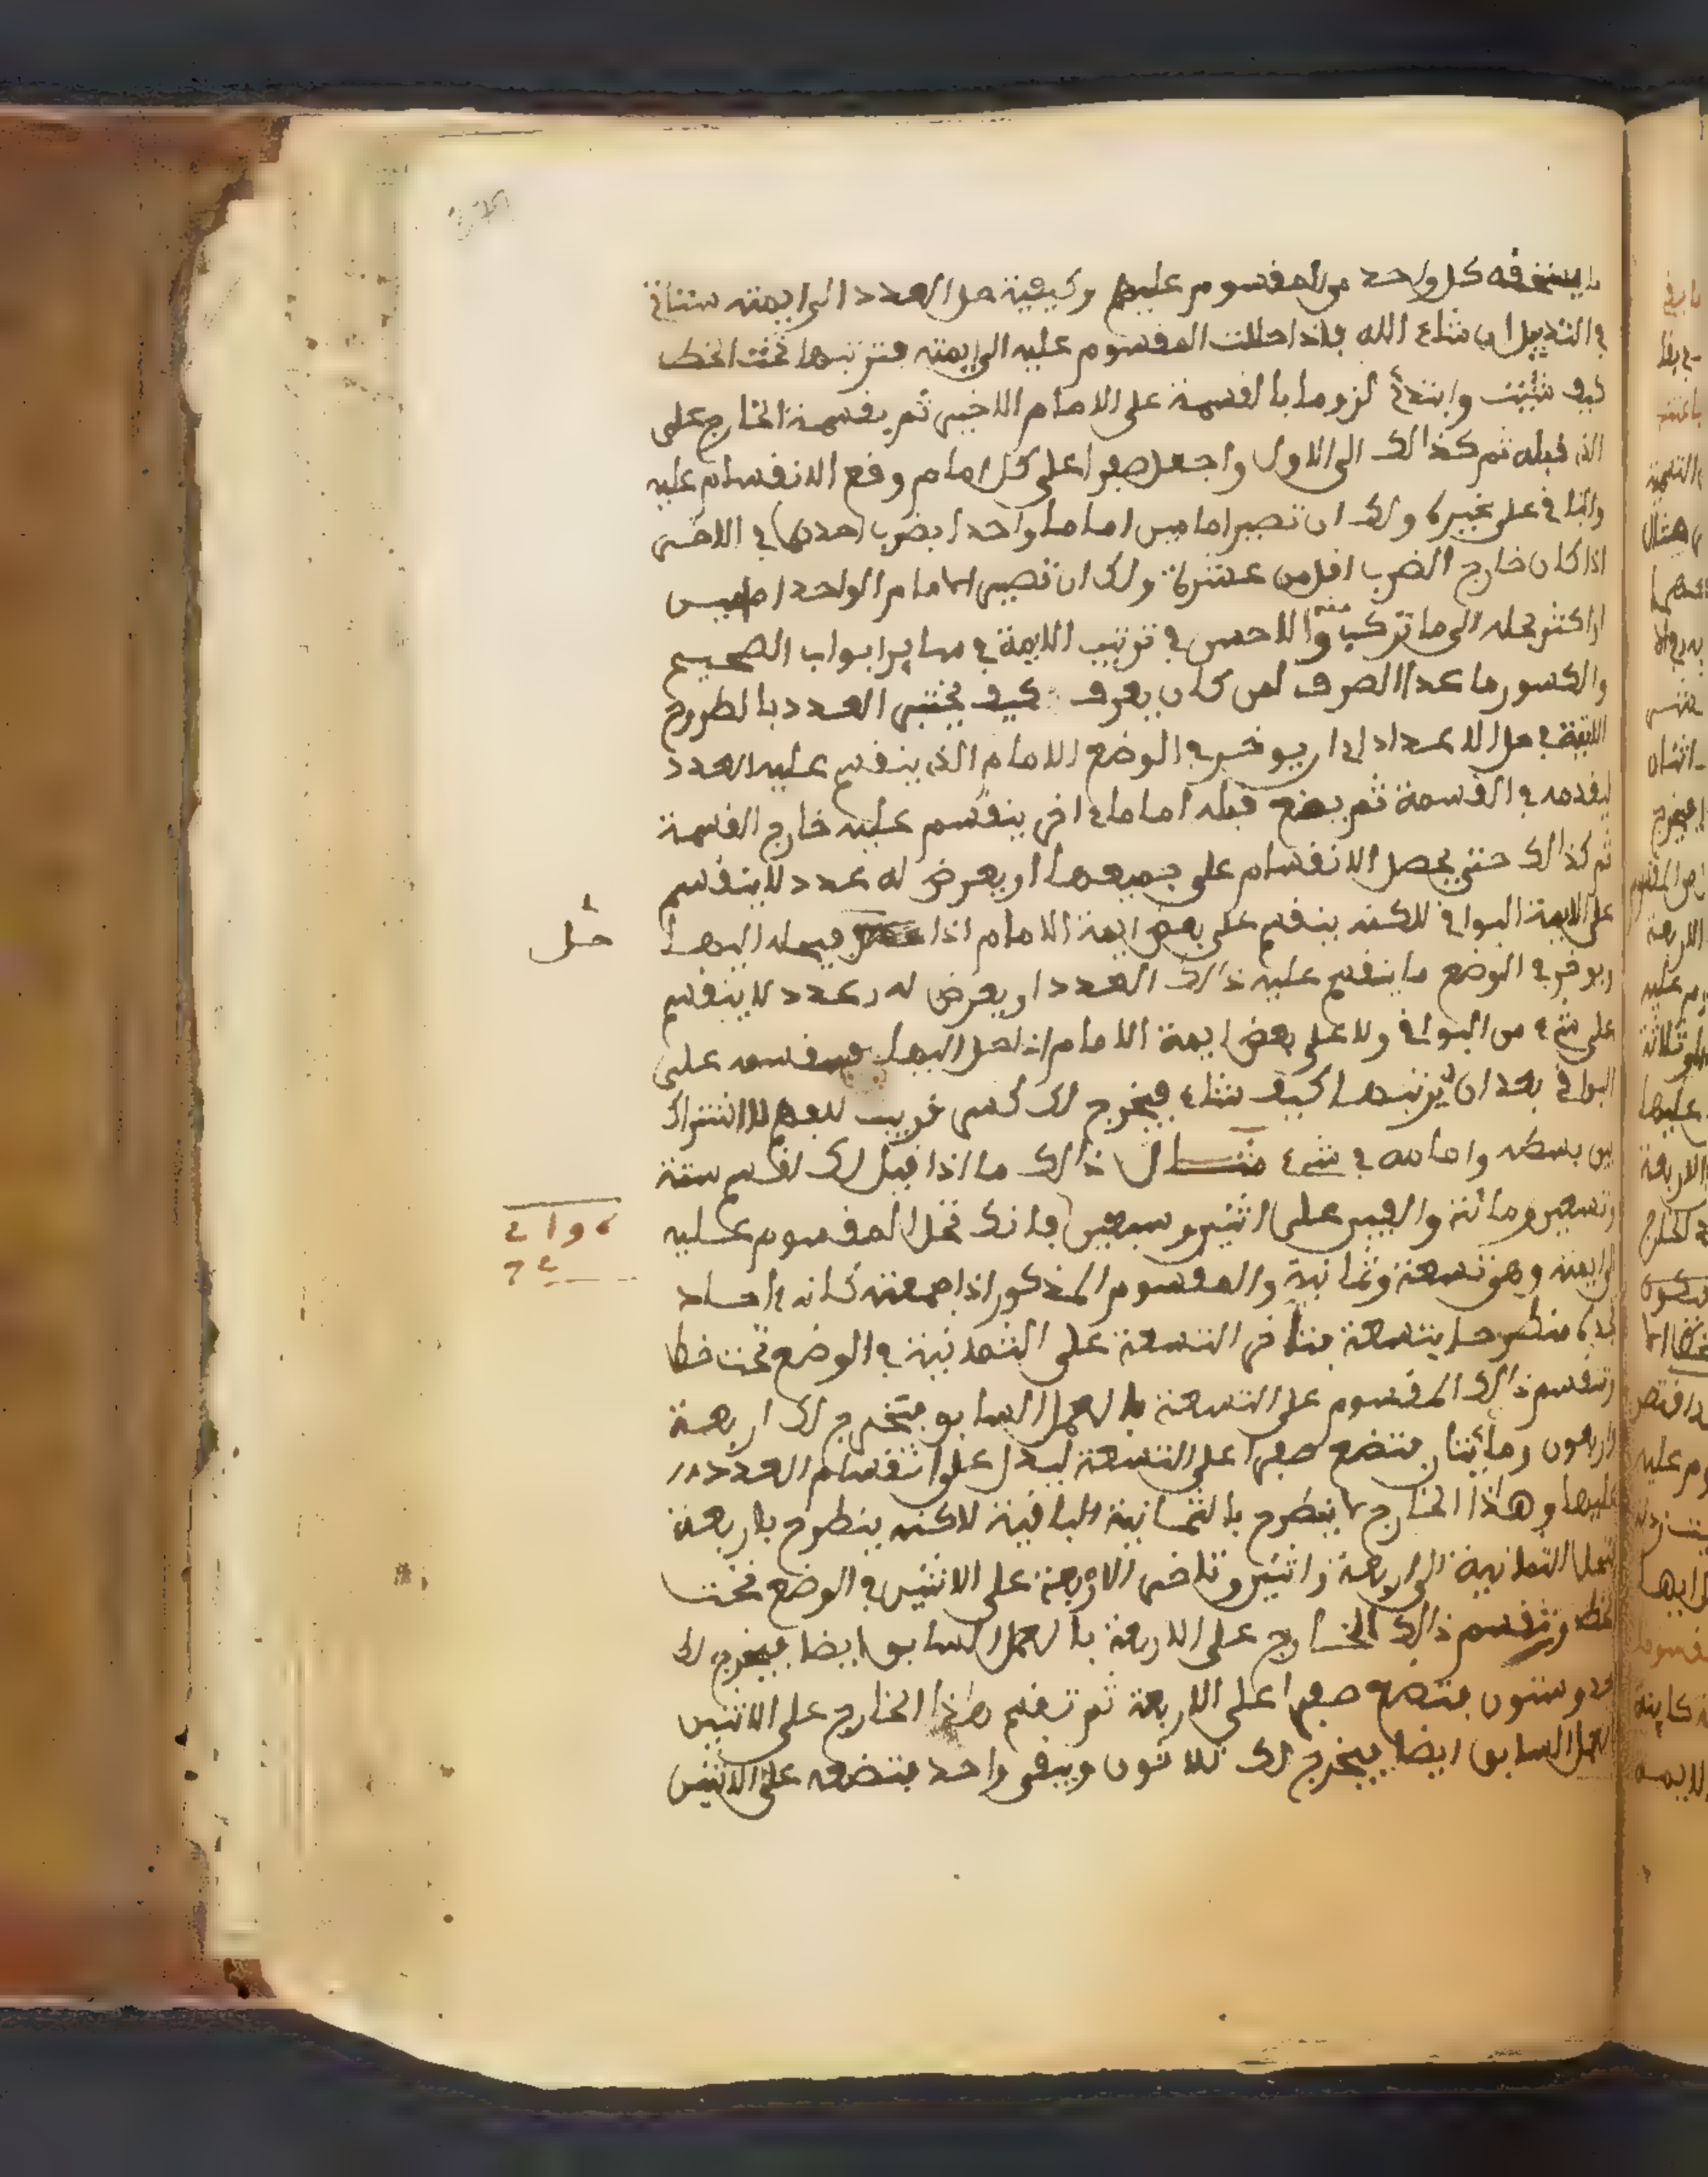 ما يستحقه كل واحد من المقسوم عليهم وكيفية حل العدد الى ايمته ستاتي
في التذييل ان شاء الله فاذا حللت المقسوم عليه الى ايمته فترتبها تحت الخط
كيف شئت وابتدئ لزوما بالقسمة على الامام الاخير ثم بقسمة الخارج على
الذي قبله ثم كذالك الى الاول واجعل صفرا على كل امام وقع الانقسام عليه
والباقي على غيره ولك ان تصير امامين اماما واحدا بضرب احدهما في الاخر
اذا كان خارج الضرب اقل من عشرة ولك ان تصير الامام الواحد امامين
او اكثر بحله الى ما تركب منه والاحسن في ترتيب الايمة في ساير ابواب الصحيح
والكسور ما عدا الصرف لمن كان يعرف كيف يختبر العدد بالطروح
الاتية في حل الاعداد ان يوخر في الوضع الامام الذي ينقسم عليه العدد
ليقدمه في القسمة ثم يضع قبله اماما اخر ينقسم عليه خارج القسمة
ثم كذالك حتى يحصل الانقسام على جميعها او يعرض له عدد لا ينقسم
على الايمة البواقي لاكنه ينقسم على بعض ايمة الامام اذا حل فيحله اليها
ويوخر في الوضع ما ينقسم عليه ذالك العدد او يعرض له عدد لا ينقسم
على شيء من البواقي ولا على بعض ايمة الامام اذا حل اليها فيقسمه على
البواقي بعد ان يرتبها كيف شاء فيخرج لك كسر غريب لعدم الاشتراك
بين بسطه وامامه في شيء مثال ذالك ما اذا قيل لك اقسم ستة
وتسعين ومائة والفين على اثنين وسبعين فانك تحل المقسوم عليه
الى ايمته وهو تسعة وثمانية والمقسوم المذكور اذا جمعته كانه احاد
تجده منطرحا بتسعة فتاخر التسعة على الثمانية في الوضع تحت خط
وتقسم ذالك المقسوم على التسعة بالعمل السابق فيخرج لك اربعة
واربعون ومائتان فتضع صفرا على التسعة ليدل على انقسام العدد
عليها وهذا الخارج لا ينطرح بالثمانية الباقية لاكنه ينطرح باربعة
فتحل الثمانية الى اربعة واثنين وتاخر الاربعة على الاثنين في الوضع تحت
خط وتقسم ذالك الخارج على الاربعة بالعمل السابق ايضا فيخرج لك
احد وستون فتضع صفرا على الاربعة ثم تقسم هذا الخارج على الاثنين
بالعمل السابق ايضا فيخرج لك ثلاثون ويبقى واحد فتضعه على الاثنين
حل